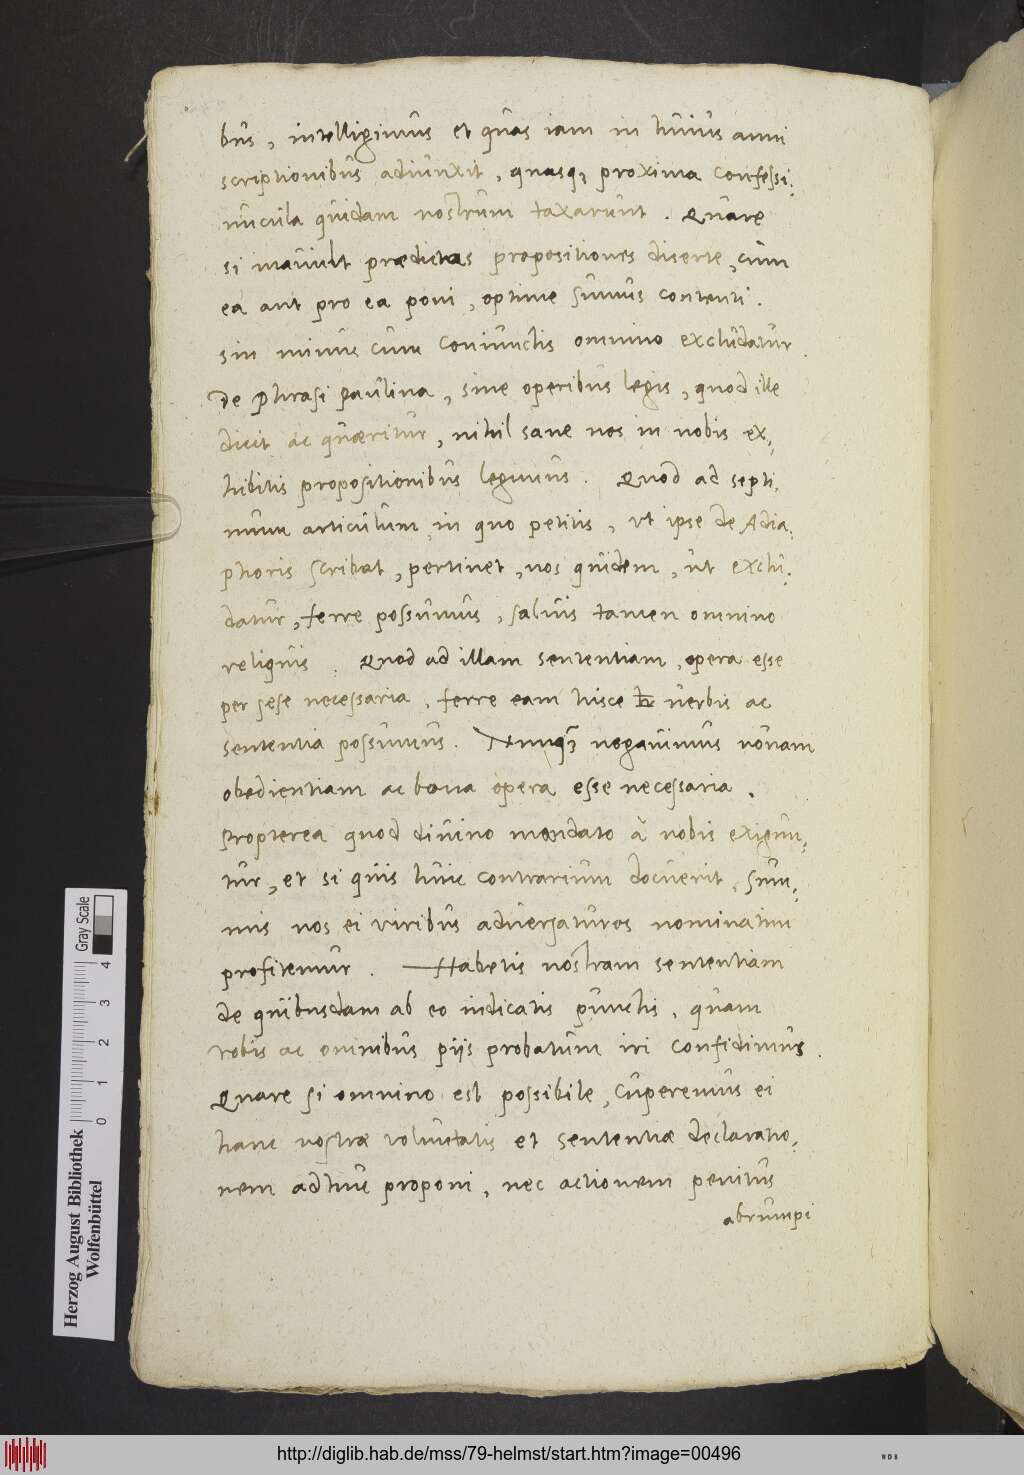 bus, intelligimus et quas iam in huius anni
scriptionibus adiunxit, quasq; proxima confessi:
nucula quidam nostrum taxarunt. Quare
si mauult prædictas propositiones diserte, cum
ea aut pro ea poni, optime sumus contenti.
sin minus cum coniunctis omnino excludatur.
De Phrasi paulina, sine operibus legis, quod ille
dicit ac quæritur, nihil sane nos in nobis ex:
hibitis propositionibus legimus. Quod ad septi:
mum articulum, in quo petitis, vt ipse de Adia:
phoris scribat, pertinet, nos quidem, ut exclu:
datur, ferre possumus, saluis tamen omnino
reliquis. Quod ad illam sententiam, opera esse
per sese necessaria, ferre eam hisce verbis ac
sententia possumus. Nunq; negauimus nouam
obedientiam ac bona opera esse necessaria.
Propterea quod diuino mandato à nobis exigun:
tur, et si quis huic contrarium docuerit, sum:
mis nos ei viribus aduersaturos nominatim
profitemur. Habetis nostram sententiam
de quibusdam ab eo indicatis punctis, quam
vobis ac omnibus piis probatum iri confidimus.
Quare si omnino est possibile, cuperemus ei
hanc nostræ voluntatis et sententiæ declaratio:
nem adhuc proponi, nec actionem penitus
abrumpi
Gray Scale
0 1 2 3 4
Herzog August Bibliothek
Wolfenbüttel
http://diglib.hab.de/mss/79-helmst/start.htm?image=00496
WDB